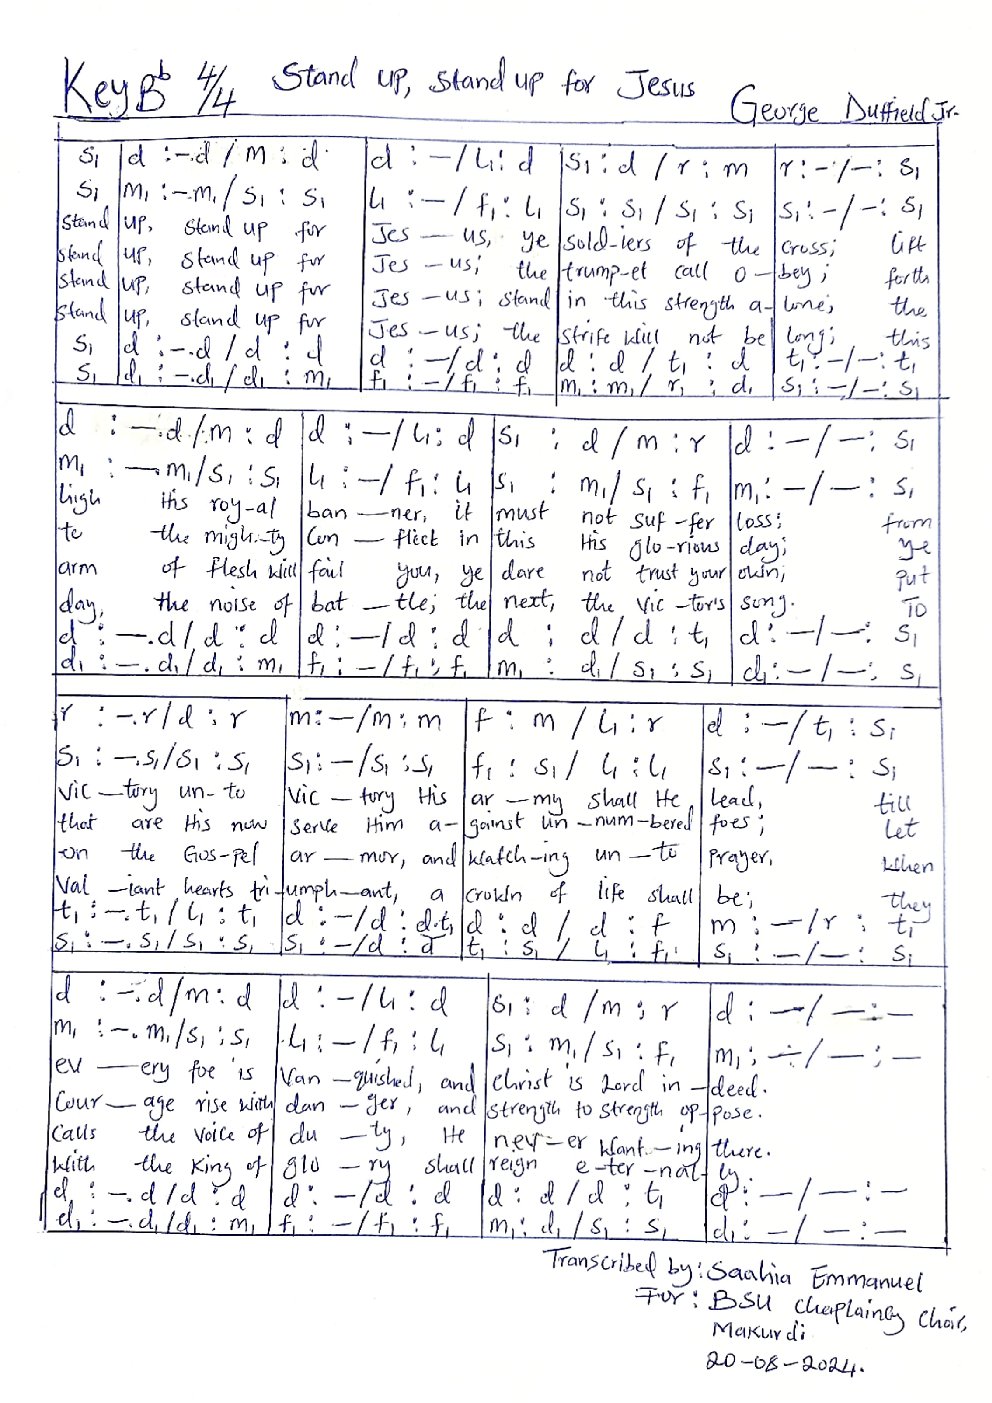 Key Bb 4/4 Stand up, Stand up for Jesus
George Duffield Jr.
s₁ |d :-.d / m : d |d : - / l₁: d |s₁ : d / r : m |r : - / - : s₁
s₁ |m₁ :-.m₁ / s₁ : s₁ |l₁ : - / f₁ : l₁ |s₁ : s₁ / s₁ : s₁ |s₁ : - / - : s₁
stand |up, stand up for |Jes — us, ye |sold-iers of the |cross; lift
stand |up, stand up for |Jes – us; the |trump-et call o- |bey; forth
stand |up, stand up for |Jes – us; stand |in this strength a- |lone; the
stand |up, stand up for |Jes – us; the |strife will not be |long; this
s₁ |d :-.d / d : d |d : - / d : d |d : d / t₁ : d |t₁ : - / - : t₁
s₁ |d₁ :-.d₁ / d₁ : m₁ |f₁ : - / f₁ : f₁ |m₁ : m₁ / r₁ : d₁ |s₁ : - / - : s₁
d : -.d / m : d |d : - / l₁ : d |s₁ : d / m : r |d : - / - : s₁
m₁ : - m₁ / s₁ : s₁ |l₁ : - / f₁ : l₁ |s₁ : m₁ / s₁ : f₁ |m₁ : - / - : s₁
high His roy-al |ban — ner, it |must not suf-fer |loss; from
to the migh-ty |Con — flict in |this His glo-rious |day; ye
arm of flesh will |fail you, ye |dare not trust your |own; put
day, the noise of |bat — tle; the |next, the vic-tor's |song. To
d : -.d / d : d |d : - / d : d |d : d / d : t₁ |d : - / - : s₁
d₁ : -.d₁ / d₁ : m₁ |f₁ : - / f₁ : f₁ |m₁ : d₁ / s₁ : s₁ |d₁ : - / - : s₁
r : -.r / d : r |m : - / m : m |f : m / l₁ : r |d : - / t₁ : s₁
s₁ : -.s₁ / s₁ : s₁ |s₁ : - / s₁ : s₁ |f₁ : s₁ / l₁ : l₁ |s₁ : - / - : s₁
Vic — tory un-to |Vic — tory His |ar — my shall He |lead, till
that are His now |serve Him a- |gainst un-num-bered |foes; let
on the Gos-pel |ar — mor, and |watch-ing un — to |prayer, when
Val — iant hearts tri- |umph-ant, a |crown of life shall |be; they
t₁ : -.t₁ / l₁ : t₁ |d : - / d : d.t₁ |d : d / d : f |m : - / r : t₁
s₁ : -.s₁ / s₁ : s₁ |s₁ : - / d : d |t₁ : s₁ / l₁ : f₁ |s₁ : - / - : s₁
d : -.d / m : d |d : - / l₁ : d |s₁ : d / m : r |d : - / - : -
m₁ : -.m₁ / s₁ : s₁ |l₁ : - / f₁ : l₁ |s₁ : m₁ / s₁ : f₁ |m₁ : - / - : -
ev — ery foe is |Van — quished, and |Christ is Lord in- |deed.
Cour — age rise with |dan — ger, and |strength to strength op- |pose.
Calls the voice of |du — ty, He |nev-er want-ing |there.
With the King of |glo — ry shall |reign e-ter-nal- |ly.
d : -.d / d : d |d : - / d : d |d : d / d : t₁ |d : - / - : -
d₁ : -.d₁ / d₁ : m₁ |f₁ : - / f₁ : f₁ |m₁ : d₁ / s₁ : s₁ |d₁ : - / - : -
Transcribed by: Saahia Emmanuel
For: BSU Chaplaincy Choir,
Makurdi
20-08-2024.